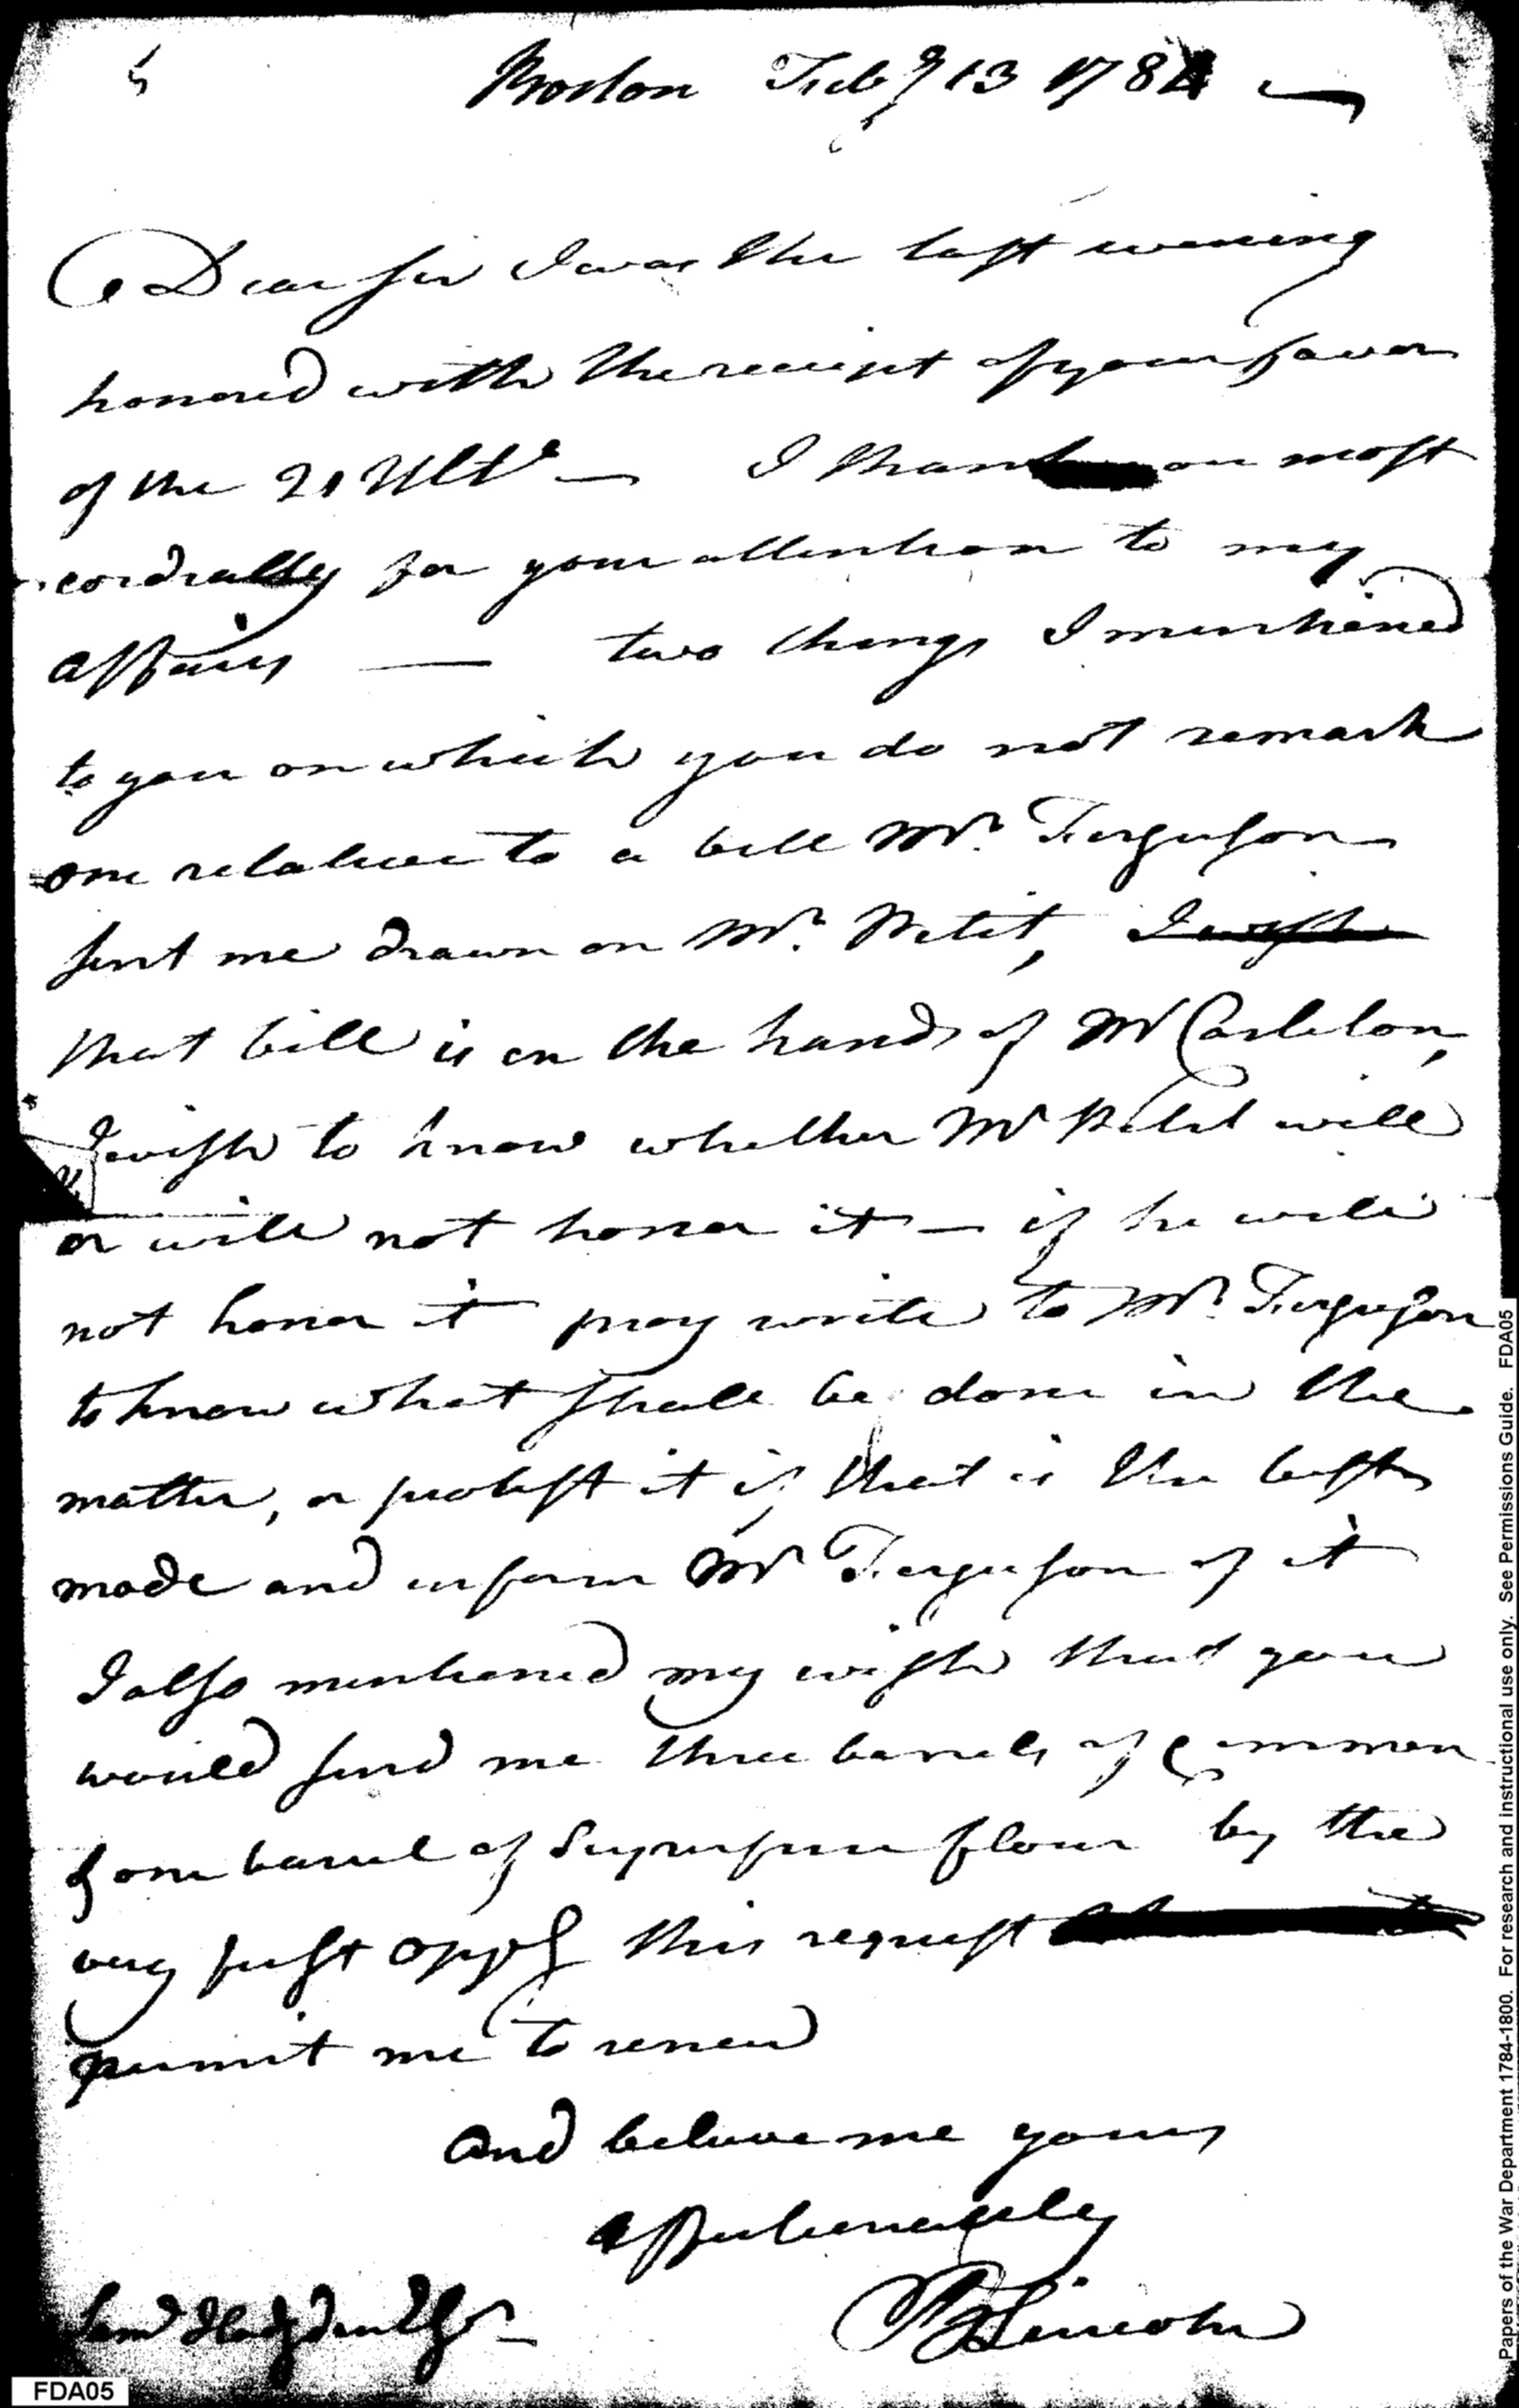 5
Boston Feby 13 1784
Dear sir I was the last evening
honored with the receipt of your favor
of the 21 Ulto — I thank you most
cordially for your attention to my
affairs — two things I mentioned
to you on which you do not remark
one relative to a bill Mr. Ferguson
sent me drawn on Mr. Petit, I wish
that bill is in the hands of Mr Carleton,
I wish to know whether Mr Petit will
or will not honor it — if he will
not honor it pray write to Mr. Ferguson
to know what shall be done in the
matter, or protest it if that is the best
mode and inform Mr Ferguson of it
I also mentioned my wish that you
would send me three barrels of common
& one barrel of Superfine flour by the
very first oppy this request
permit me to renew
and believe me yours
affectionately
B Lincoln
Saml Hodgdon Esqr
FDA05
Papers of the War Department 1784-1800. For research and instructional use only. See Permissions Guide. FDA05